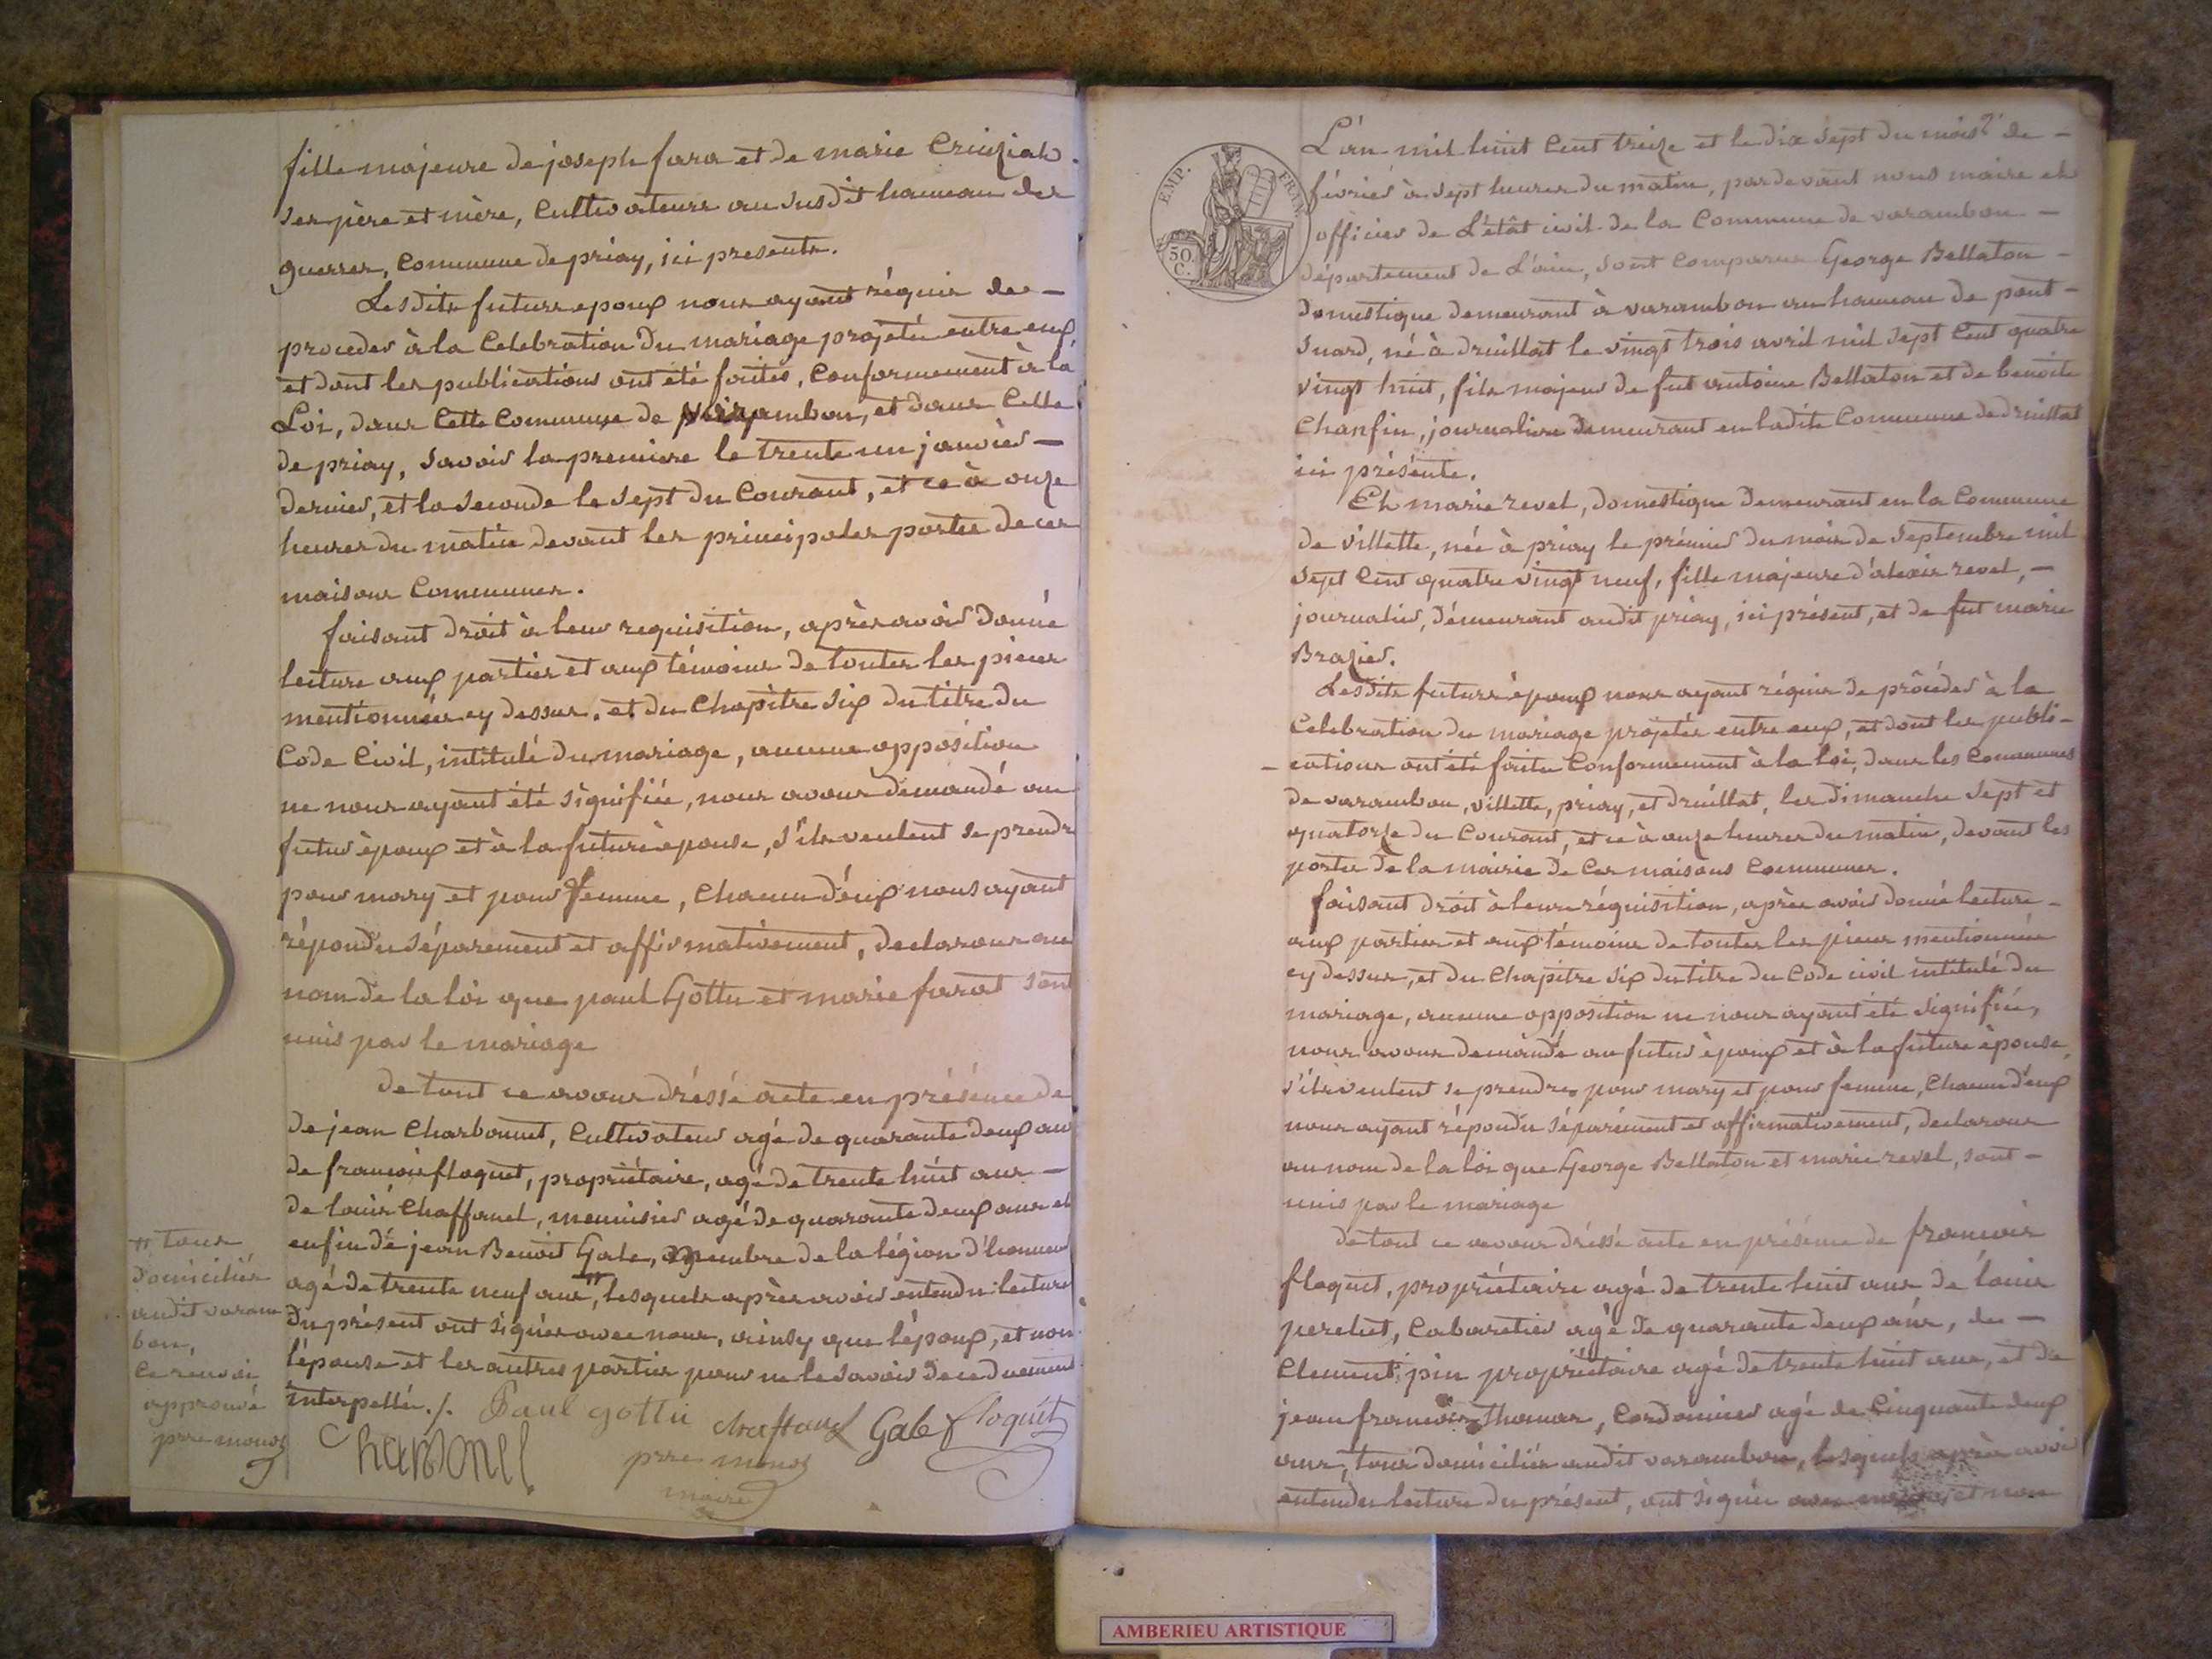 fille majeure de joseph fara et de marie Cruiziat
ses père et mère, Cultivateurs au susdit hameau des
guerres, Commune de priay, ici presents.
Lesdits futurs epoux nous ayant réquis de -
proceder à la Celebration du mariage projetté entre eux,
et dont les publications ont été faites, Conformement à la
Loi, dans Cette Commune de varambon, et dans Celle
de priay, savoir la premiere le trente un janvier -
dernier, et la seconde le sept du Courant, et ce à onze
heures du matin devant les principales portes de ces
maisons Communes.
faisant droit à leur requisition, après avoir donné
lecture aux parties et aux témoins de toutes les pieces
mentionnées cy dessus, et du Chapitre six du titre du
Code Civil, intitulé du mariage, aucune opposition
ne nous ayant été signifiée, nous avons demandé au
futur époux et à la future épouse, s'ils veulent se prendre
pour mary et pour femme, Chacun d'eux nous ayant
répondu séparement et affirmativement, declarons au
nom de la loi que paul Gottu et marie farat sont
unis par le mariage
de tout ce avons dréssé acte en présence de
de jean Charbonnet, Cultivateur agé de quarante deux ans
de francois floquet, propriétaire, agé de trente huit ans -
de louis Chaffanel, menuisier agé de quarante deux ans et
enfin de jean Benoit Gale, membre de la légion d'honneur
agé de trente neuf ans, # lesquels après avoir entendu lecture
du présent ont signés avec nous, ainsy que l'époux, et non
l'épouse et les autres parties pour ne le savoir de ce duement
interpellés ./.
# tous
domiciliés
audit varam
bon,
le renvoi
approuvé
prre monoz
Paul gottu
chaffanel
Gale
floquet
Charbonnel
prre monoz
maire
EMP. FRAN.
50. C.
L'an mil huit Cent treize et le dix sept du mois de -
février à sept heures du matin, pardevant nous maire et
officier de L'état civil de la Commune de varambon -
département de L'ain, sont Comparus George Bellaton -
domestique demeurant à varambon au hameau de pont -
suard, né à druillat le vingt trois avril mil sept Cent quatre
vingt huit, fils majeur de fut antoine Bellaton et de benoite
Chanfin, journaliere demeurant en ladite Commune de druillat
ici présente.
Et marie revel, domestique demeurant en la Commune
de villette, née à priay le prémier du mois de septembre mil
sept Cent quatre vingt neuf, fille majeure d'alexis revel, -
journalier, démeurant audit priay, ici présent, et de fut marie
Brazier.
Lesdits futurs époux nous ayant réquis de procéder à la
Celebration du mariage projetté entre eux, et dont les publi -
- cations ont été faites Conformement à la loi, dans les Communes
de varambon, villette, priay, et druillat, les dimanche sept et
quatorze du Courant, et ce à onze heures du matin, devant les
portes de la mairie de Ces maisons Communes.
faisant droit à leur réquisition, après avoir donné lecture -
aux parties et aux témoins de toutes les pieces mentionnées
cy dessus, et du Chapitre six du titre du Code civil intitulé du
mariage, aucune opposition ne nous ayant été signifiée,
nous avons demandé au futur époux et à la future épouse,
s'ils veulent se prendre pour mary et pour femme, Chacun d'eux
nous ayant répondu séparément et affirmativement, declarons
au nom de la loi que George Bellaton et marie revel, sont -
unis par le mariage
de tout ce avons dréssé acte en présence de francois
floquet, propriétaire agé de trente huit ans de louis
perelut, Cabaretier agé de quarante deux ans, de -
Clement pin propriétaire agé de trente huit ans, et de
jean francois thomas, Cordonnier agé de Cinquante deux
ans, tous domiciliés audit varambon, lesquels après avoir
entendu lecture du présent, ont signés avec nous, et non
AMBERIEU ARTISTIQUE